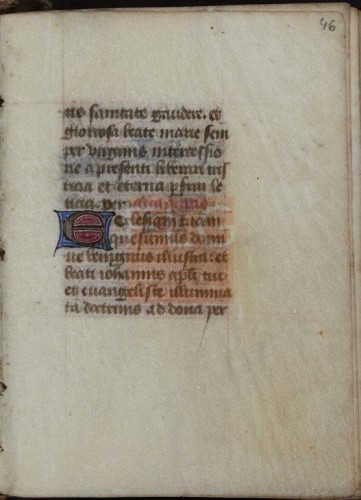 46
us sanitate gaudere. et
gloriosa beate marie sem
per virginis intercessio
ne a presenti liberari tris
ticia et eterna pfrui le
ticia. per
Ecclesiam tuam
quesumus domi
ne benignus illustra: ut
beati iohannis apli tui
et euangeliste illumina
ta doctrinis ad dona per